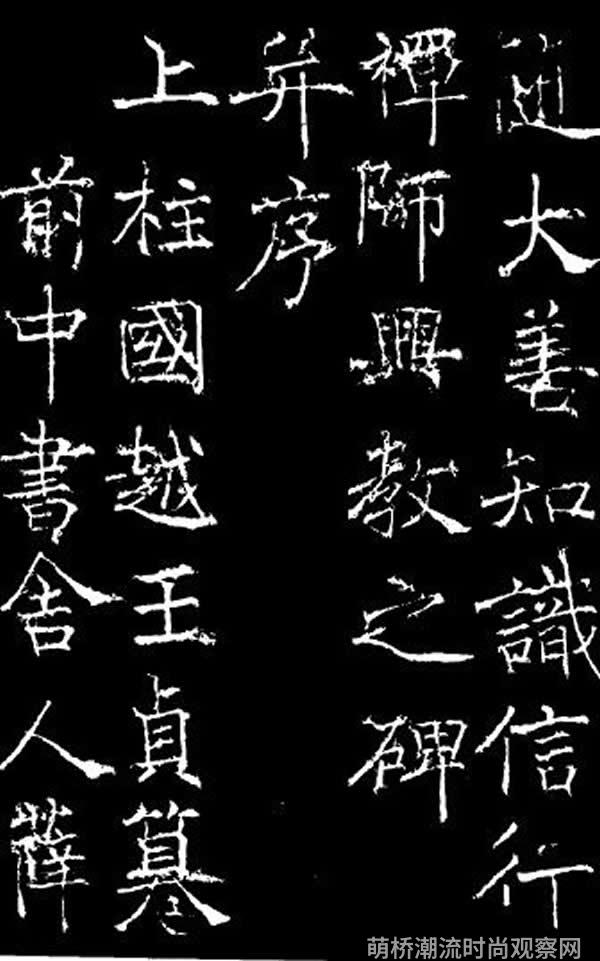 隨大善知識信行
禪師興教之碑
并序
上柱國越王貞篡
前中書舍人薛
萌桥潮流时尚观察网